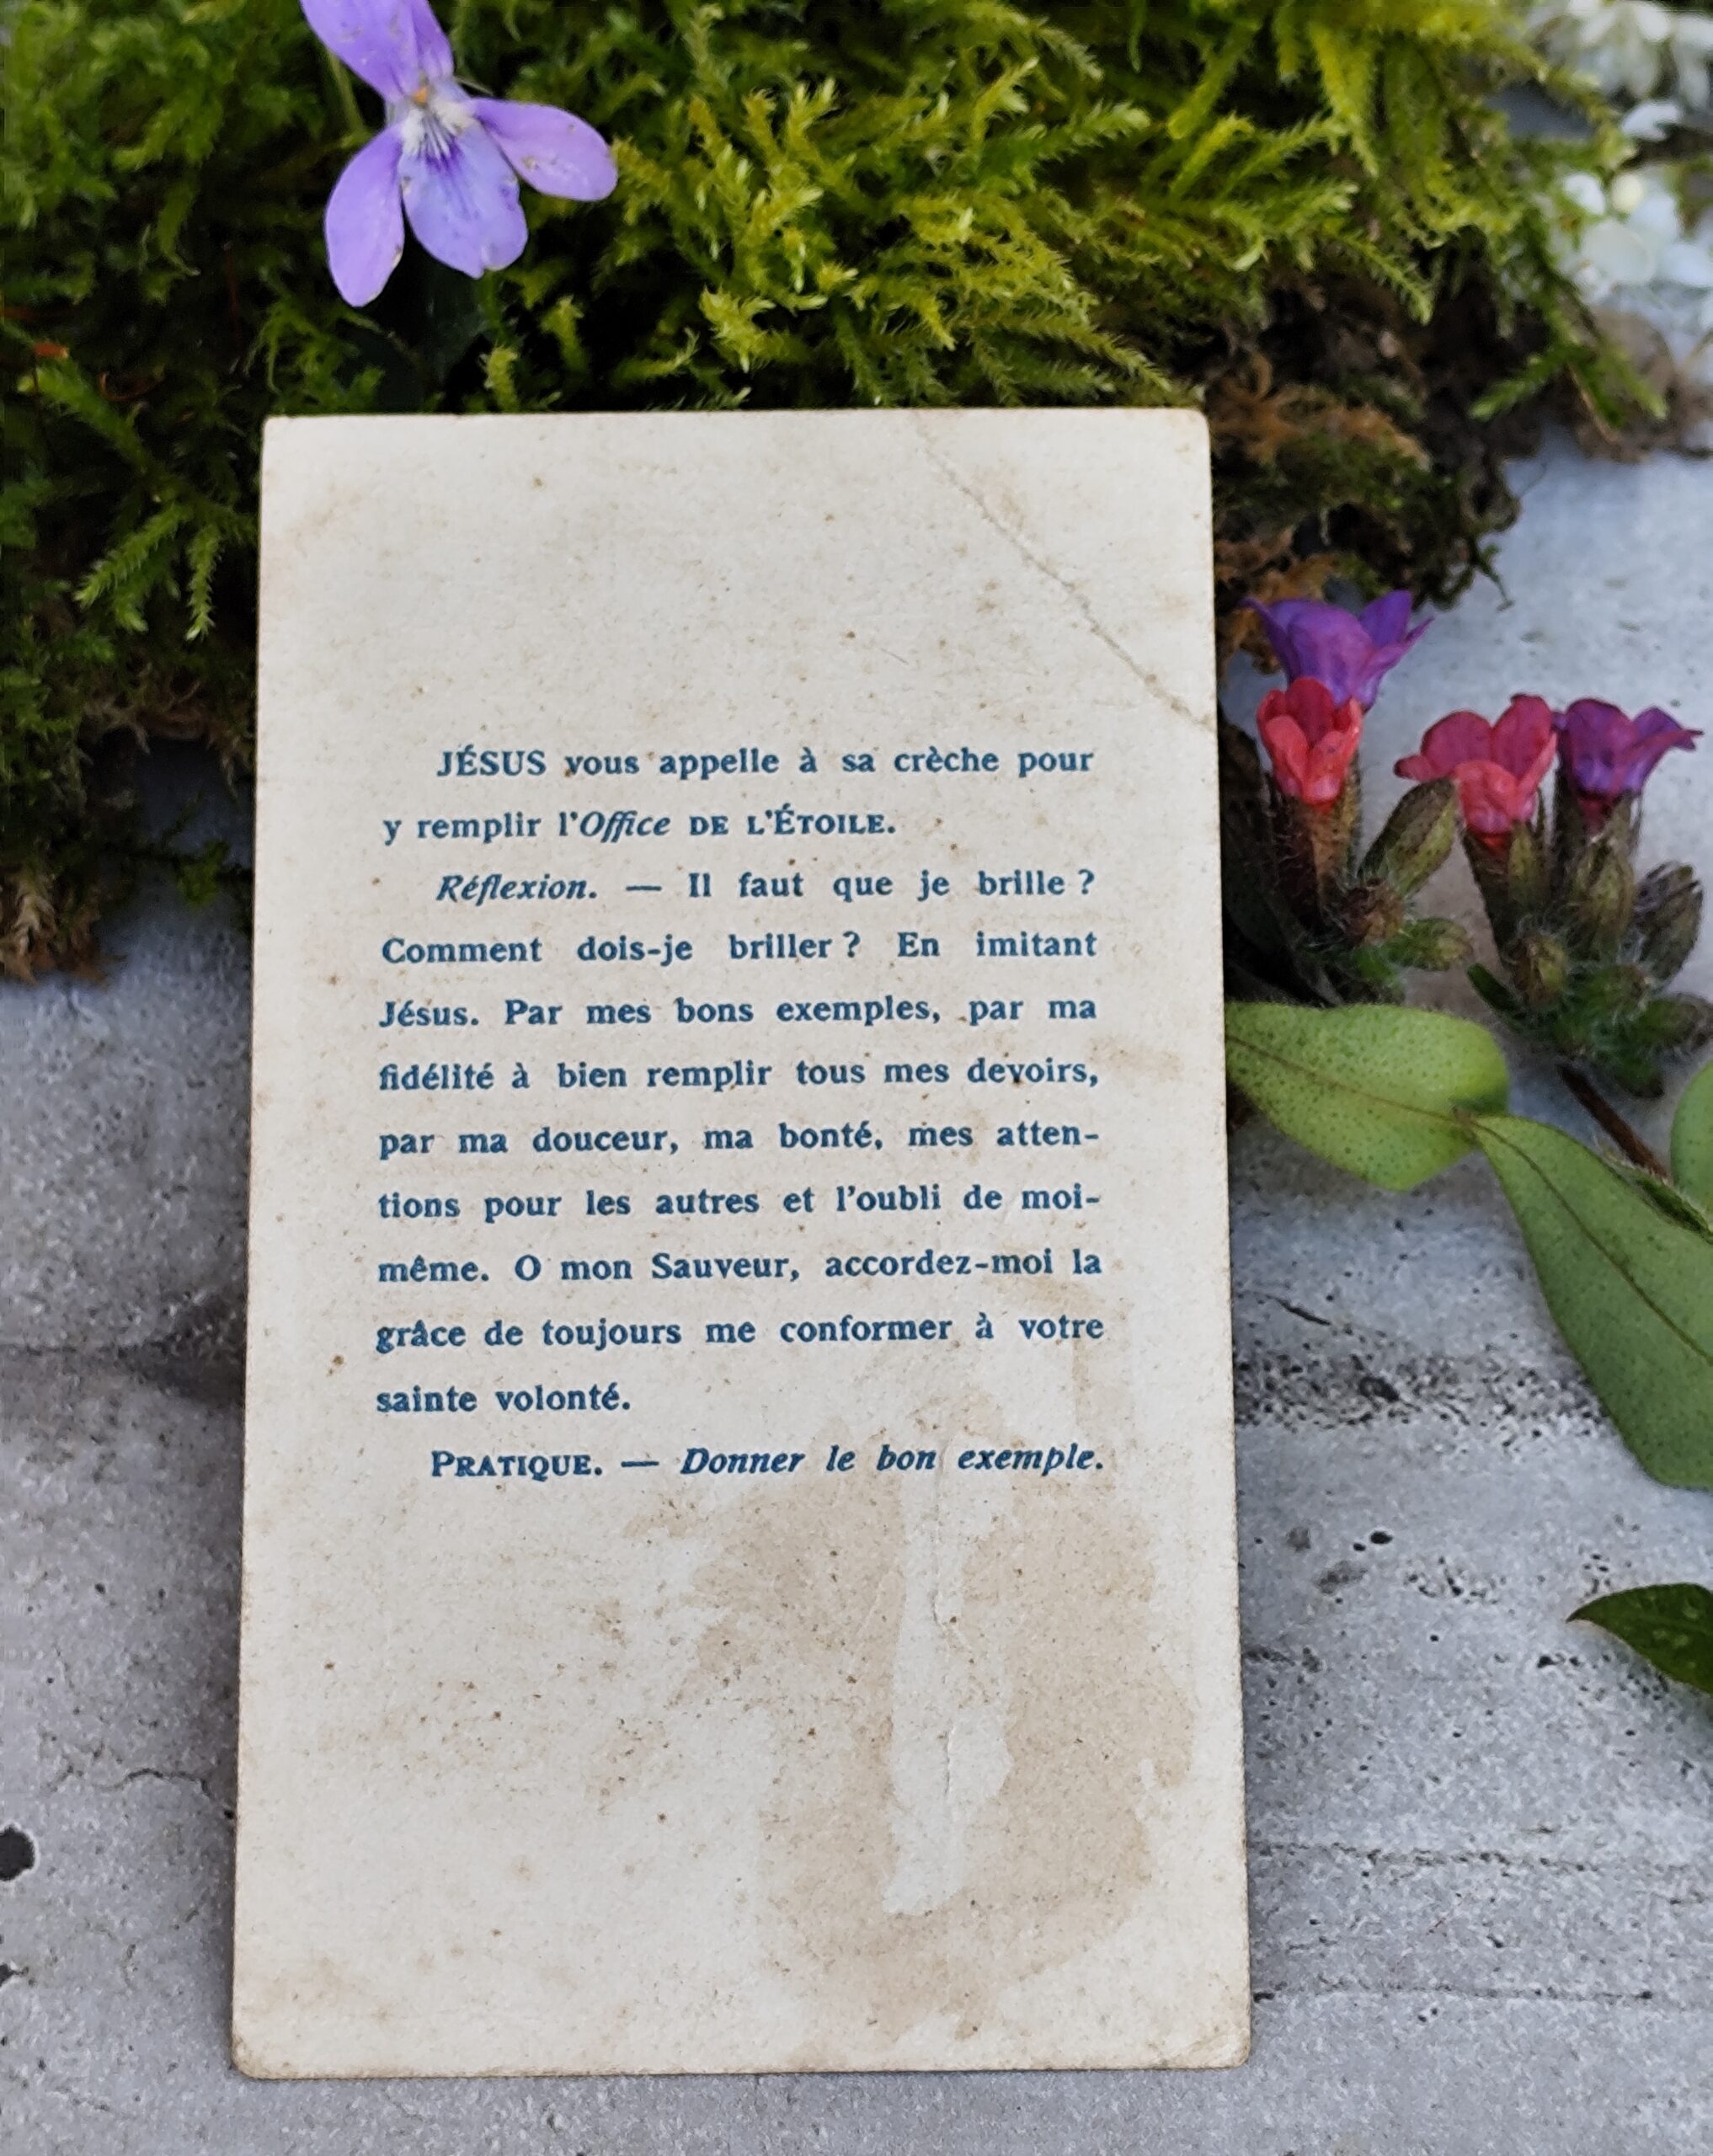 JÉSUS vous appelle à sa crèche pour
y remplir l'Office DE L'ÉTOILE.
Réflexion. — Il faut que je brille ?
Comment dois-je briller ? En imitant
Jésus. Par mes bons exemples, par ma
fidélité à bien remplir tous mes devoirs,
par ma douceur, ma bonté, mes atten-
tions pour les autres et l'oubli de moi-
même. O mon Sauveur, accordez-moi la
grâce de toujours me conformer à votre
sainte volonté.
PRATIQUE. — Donner le bon exemple.